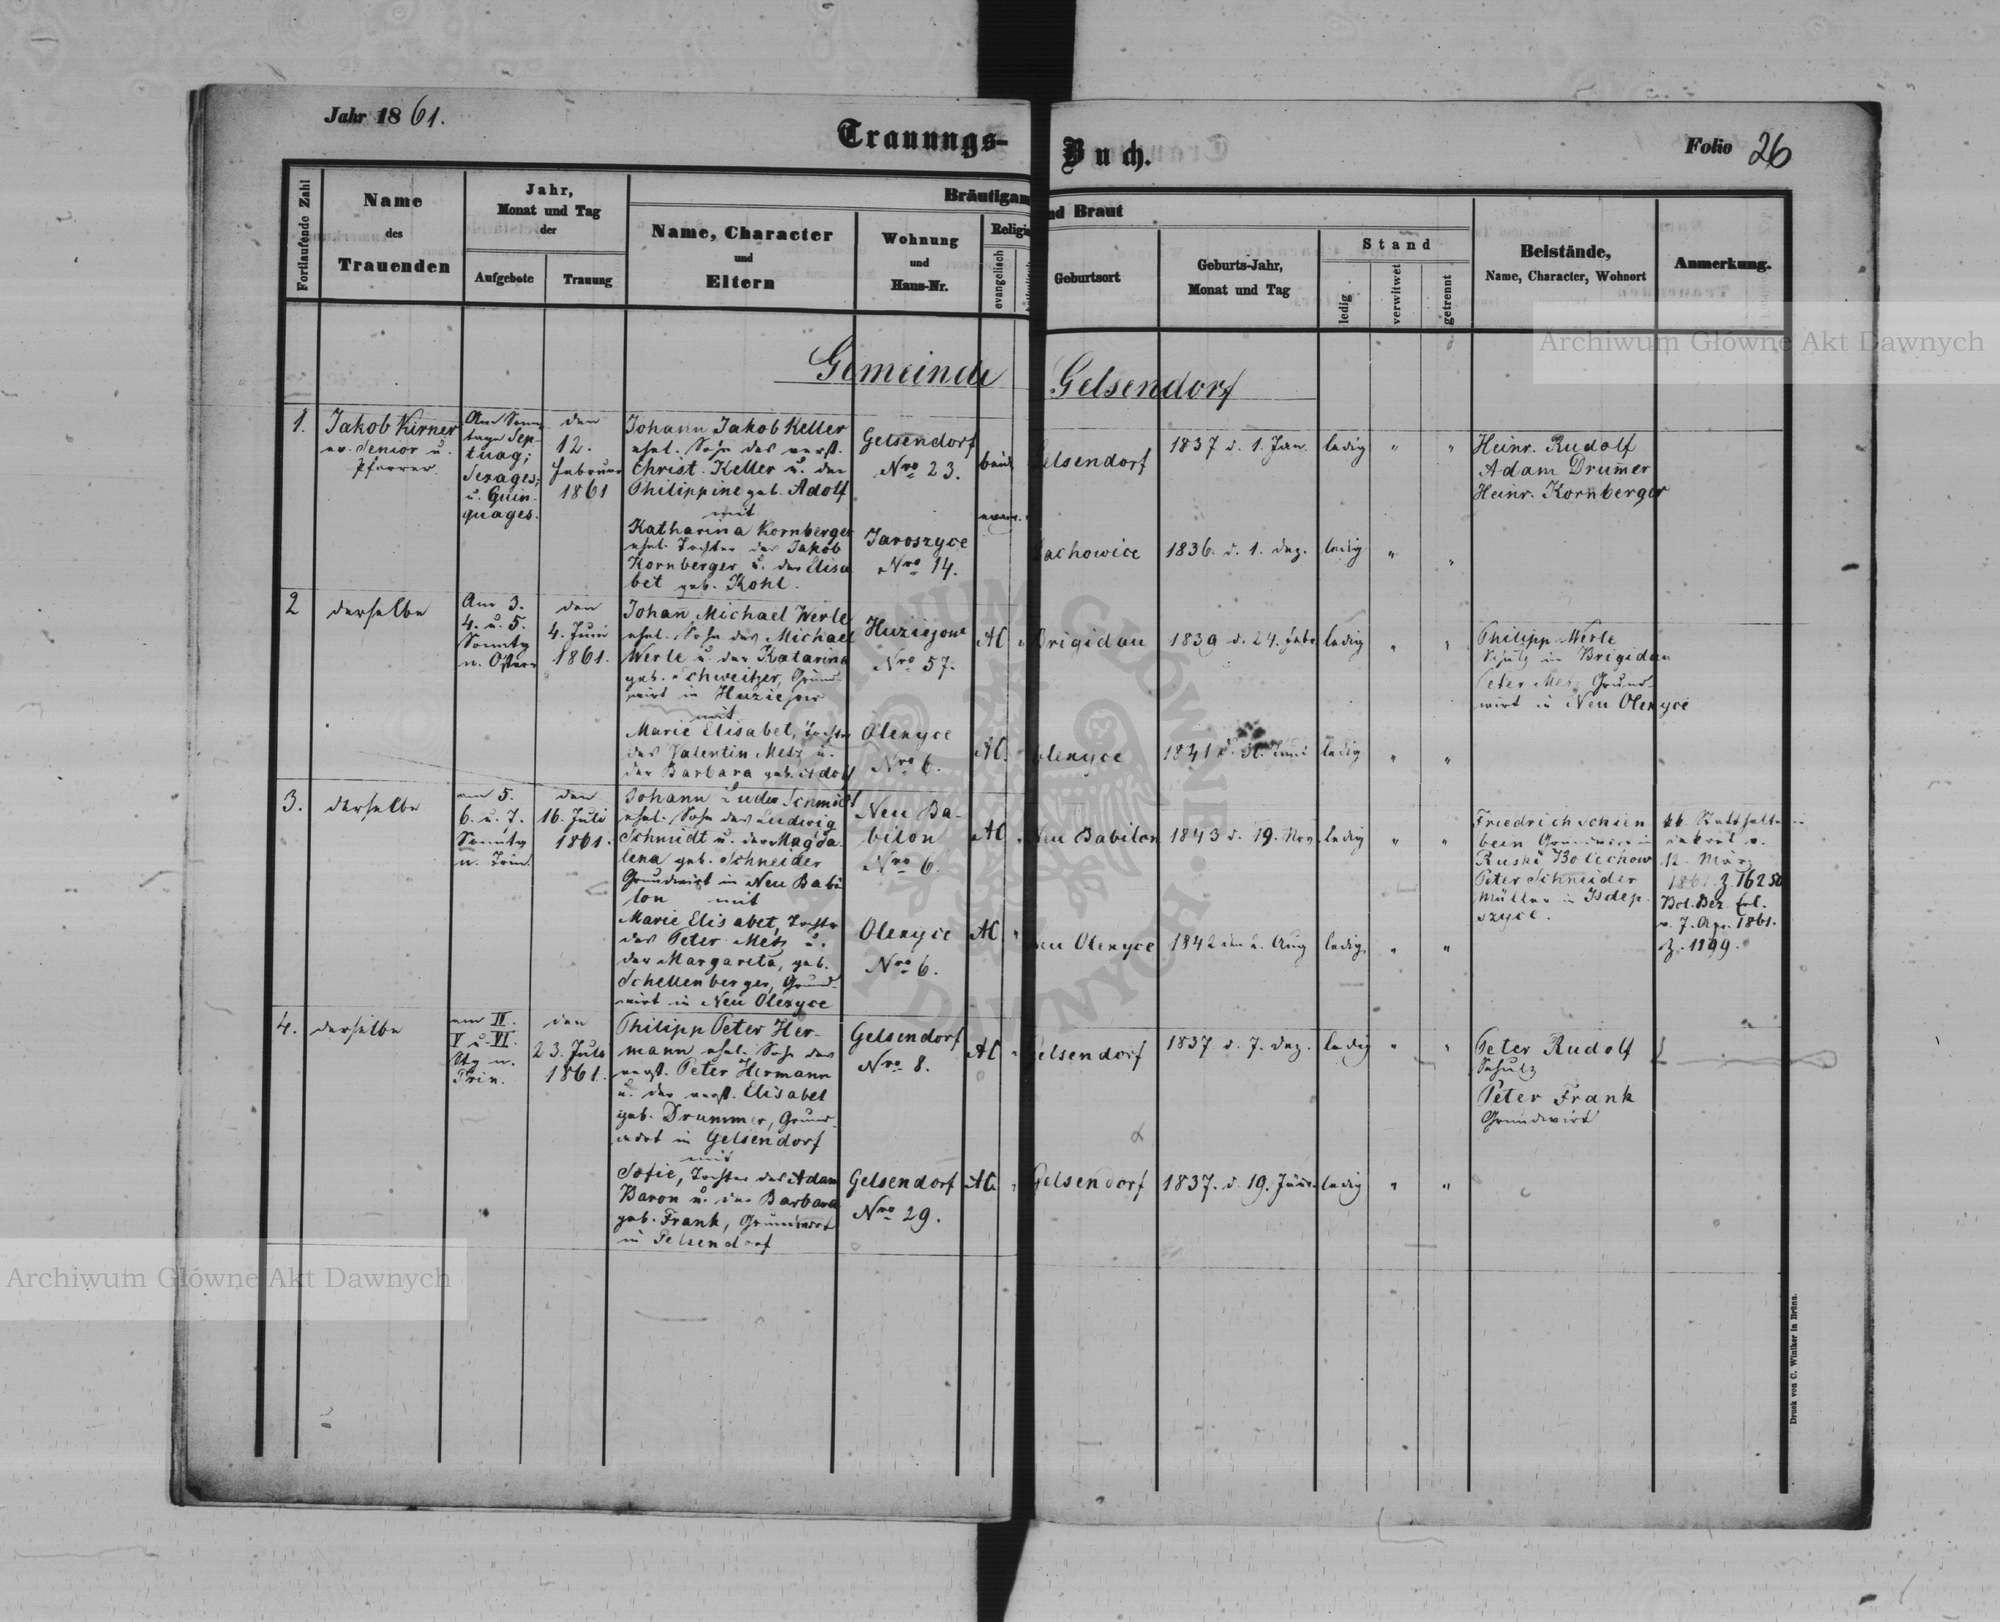 Jahr 1861.
Trauungs-Buch.
Folio 26
Fortlaufende Zahl
Name
des
Trauenden
Jahr,
Monat und Tag
der
Aufgebote
Trauung
Bräutigam
nd Braut
Name, Character
und
Eltern
Wohnung
und
Haus-Nr.
Religi
evangelisch
Geburtsort
Geburts-Jahr,
Monat und Tag
Stand
ledig
verwitwet
getrennt
Beistände,
Name, Character, Wohnort
Anmerkung.
Gemeinde Gelsendorf
1.
Jakob Kirner
ev. Senior u.
Pfarrer
Am Sonn
tage Sep-
tuag;
Sexages;
u. Quin-
quages.
den
12.
Februar
1861
Johann Jakob Keller
ehel. Sohn des verst.
Christ. Keller u. der
Philippine geb. Adolf
mit
Katharina Kornberger
ehel. Tochter des Jakob
Kornberger u. der Elisa
bet geb. Kohl.
Gelsendorf
Nro 23.
Jaroszyce
Nro 14.
elsendorf
1837 d. 1. Jan.
ledig
achowice
1836. d. 1. Dez.
ledig
Heinr. Rudolf
Adam Drumer
Heinr. Kornberger
2
derselbe
Am 3.
4. u. 5.
Sonntg
n. Ostern
den
4. Juni
1861.
Johan Michael Werle
ehel. Sohn des Michael
Werle u. der Katarina
geb. Schweitzer, Grund-
wirt in Huziejow
mit
Marie Elisabet, Tochter
des Valentin Metz u.
der Barbara geb. Adolf
Huziejow
Nro 57.
Olexyce
Nro 6.
AC
AC.
Brigidau
1839 d. 24. Febr
ledig
Olexyce
1841 d. Juni
ledig
Philipp Werle
Schulz in Brigidau
Peter Metz Grund-
wirt in Neu Olexyce
3.
derselbe
am 5.
6. u. 7.
Sonntg
n. Trin.
den
16. Juli
1861.
Johann Luder Schmidt
ehel. Sohn des Ludwig
Schmidt u. der Magda
lena geb. Schneider
Grundwirt in Neu Babi
lon mit
Marie Elisabet, Tochter
des Peter Metz u.
der Margareta, geb.
Schellenberger, Grund-
wirt in Neu Olexyce
Neu Ba-
bilon
Nro 6.
Olexyce
Nro 6.
AC
AC
Neu Babilon
1843 d. 19. Nov.
ledig
Neu Olexyce
1842 den 2. Aug
ledig
Friedrich Schien
bein Grundwirt in
Ruski Bolechow
Peter Schneider
Müller in Isdep
szyce.
kk Statthalt
dekret v.
12. März
1861. Z. 16250
Bol. Bez. Erl.
v. 7. Apr. 1861.
Z. 1199.
4.
derselbe
am IV.
V u. VI.
Stg n.
Trin.
den
23. Juli
1861.
Philipp Peter Her-
mann ehel. Sohn des
verst. Peter Hermann
u. der verst. Elisabet
geb. Drummer, Grund-
wirt in Gelsendorf
mit
Sofie, Tochter des Adam
Baron u. der Barbara
geb. Frank, Grundwirt
in Gelsendorf
Gelsendorf
Nro 8.
Gelsendorf
Nro 29.
AC
AC.
Gelsendorf
1837 d. 7. Dez.
ledig
Gelsendorf
1837. d. 19. Juni
ledig
Peter Rudolf
Schulz
Peter Frank
Grundwirt
Druck von C. Winiker in Brünn.
Archiwum Główne Akt Dawnych
Archiwum Główne Akt Dawnych